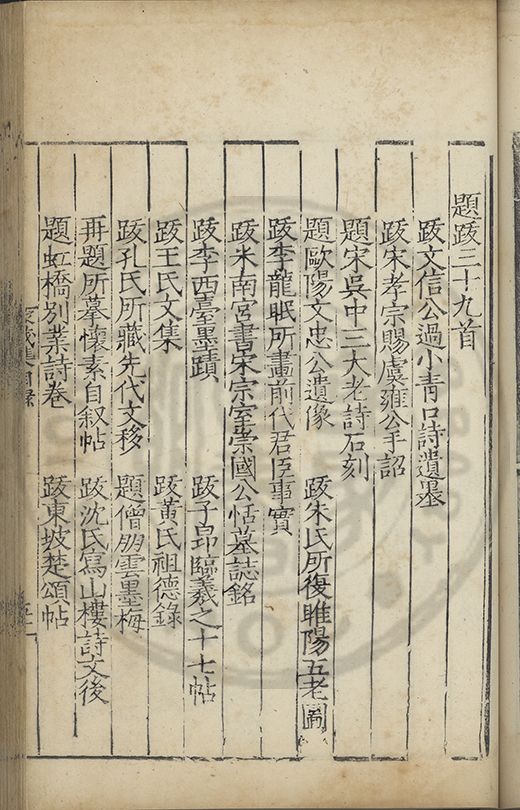 題跋三十九首
跋文信公過小青口詩遺墨
跋宋孝宗賜虞雍公手詔
題宋吳中三大老詩石刻
題歐陽文忠公遺像　跋朱氏所復睢陽五老圖
跋李龍眠所畫前代君臣事實
跋米南宮書宋宗室崇國公恬墓誌銘
跋李西臺墨蹟　跋子昂臨羲之十七帖
跋王氏文集　跋黃氏祖德錄
跋孔氏所藏先代文移　題僧朋雲墨梅
再題所摹懷素自叙帖　跋沈氏寫山樓詩文後
題虹橋别業詩卷　跋東坡楚頌帖